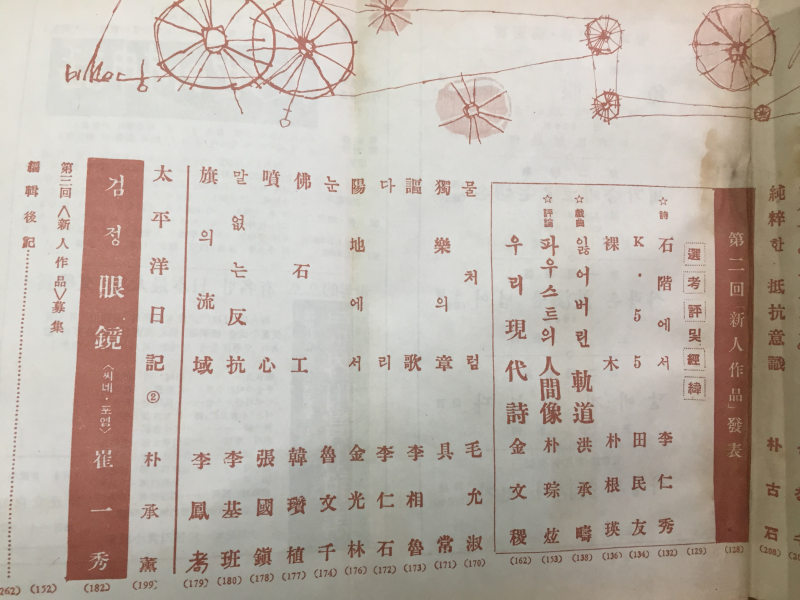 純粹한 抵抗意識 朴古石 (208)
第二回「新人作品」發表 (128)
選考評및經緯 (129)
☆詩 石階에서 李仁秀 (132)
K·55 田民友 (134)
裸木 朴根瑛 (136)
☆戱曲 잃어버린 軌道 洪承疇 (138)
☆評論 파우스트의 人間像 朴琮炫 (153)
우리 現代詩 金文稷 (162)
물처럼 毛允淑 (170)
獨樂의章 具常 (171)
謳歌 李相魯 (173)
다리 李仁石 (172)
陽地에서 金光林 (176)
눈 魯文千 (174)
佛石工 韓瓚植 (177)
噴心 張國鎭 (178)
말없는 反抗 李基班 (180)
旗의 流域 李鳳 (179)
太平洋日記② 朴承薰 (199)
검정 眼鏡〈씨네·포엠〉 崔一秀 (182)
第三回〈新人作品〉募集 (152)
編輯後記 262)